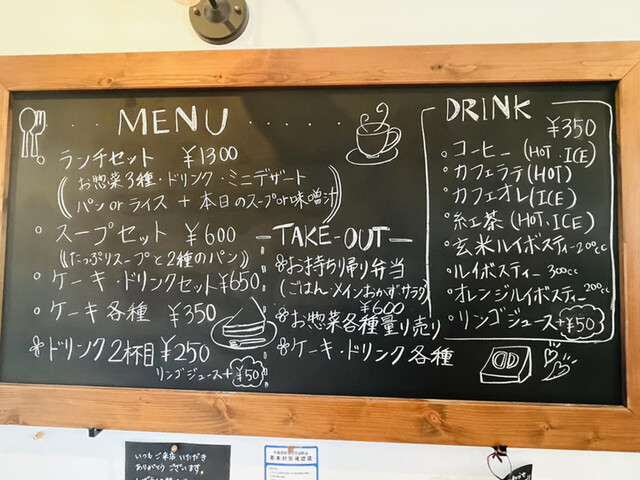 MENU
・ランチセット ¥1300
(お惣菜3種・ドリンク・ミニデザート
パン or ライス + 本日のスープor味噌汁)
・スープセット ¥600
(たっぷりスープと2種のパン)
・ケーキ・ドリンクセット ¥650
・ケーキ各種 ¥350
ドリンク2杯目 ¥250
リンゴジュース+¥50
TAKE-OUT
お持ち帰り弁当
(ごはん・メインおかず・サラダ)
¥600
お惣菜各種量り売り
ケーキ・ドリンク各種
DRINK
¥350
・コーヒー (HOT・ICE)
・カフェラテ (HOT)
・カフェオレ (ICE)
・紅茶 (HOT・ICE)
・玄米ルイボスティー200cc
・ルイボスティー 300cc
・オレンジルイボスティー200cc
・リンゴジュース+¥50
いつもご来店いただき
ありがとうございます。